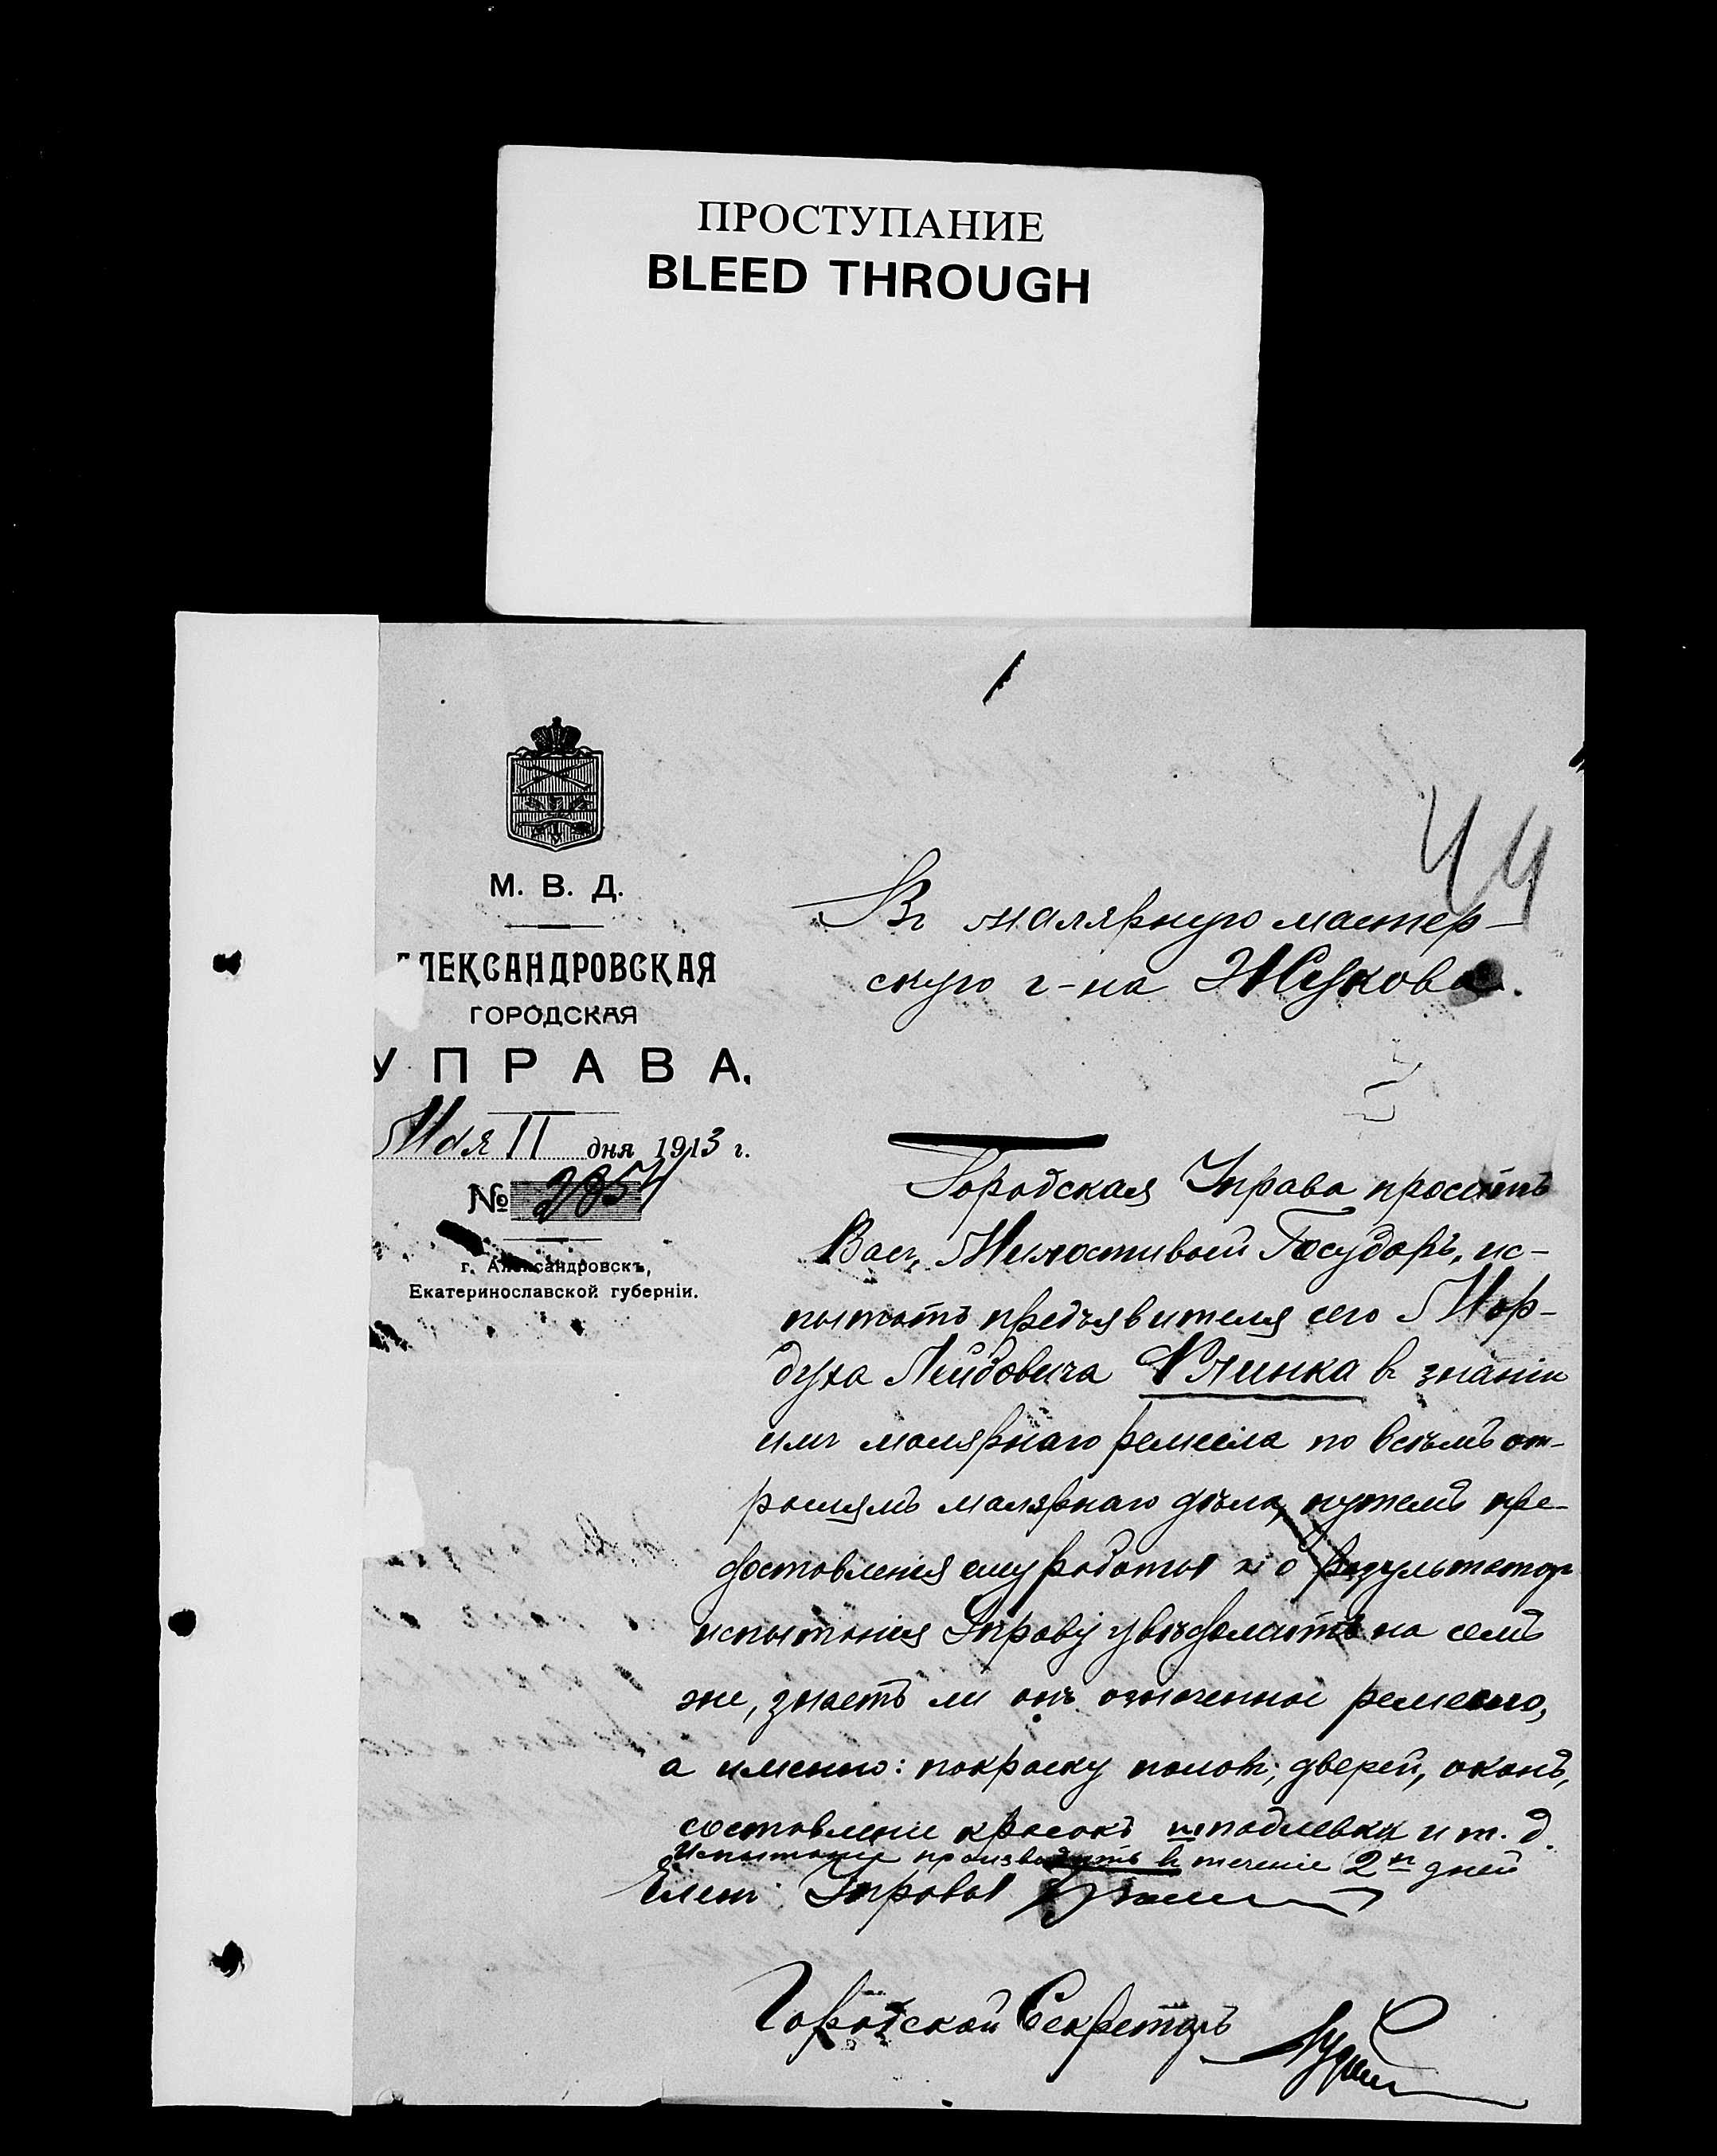 ПРОСТУПАНИЕ
BLEED THROUGH
44
М. В. Д.
АЛЕКСАНДРОВСКАЯ
ГОРОДСКАЯ
УПРАВА.
Мая 11 дня 1913 г.
№ 2854
г. Александровскъ,
Екатеринославской губерніи.
Въ малярную мастер-
скую г-на Жукова.
Городская Управа проситъ
Васъ, Милостивый Государь, ис-
пытать предъявителя сего Мор-
духа Лейбовича Клинка въ знаніи
имъ малярнаго ремесла по всѣмъ от-
раслямъ малярнаго дѣла, путемъ пре-
доставленія ему работы и о результатѣ
испытанія Управу увѣдомить на семъ
же, знаетъ ли онъ означенное ремесло,
а именно: покраску половъ, дверей, оконъ,
составленіе красокъ шпаклевки и т. д.
Испытаніе производить въ теченіе 2-хъ дней
Членъ Управы
Городской Секретарь